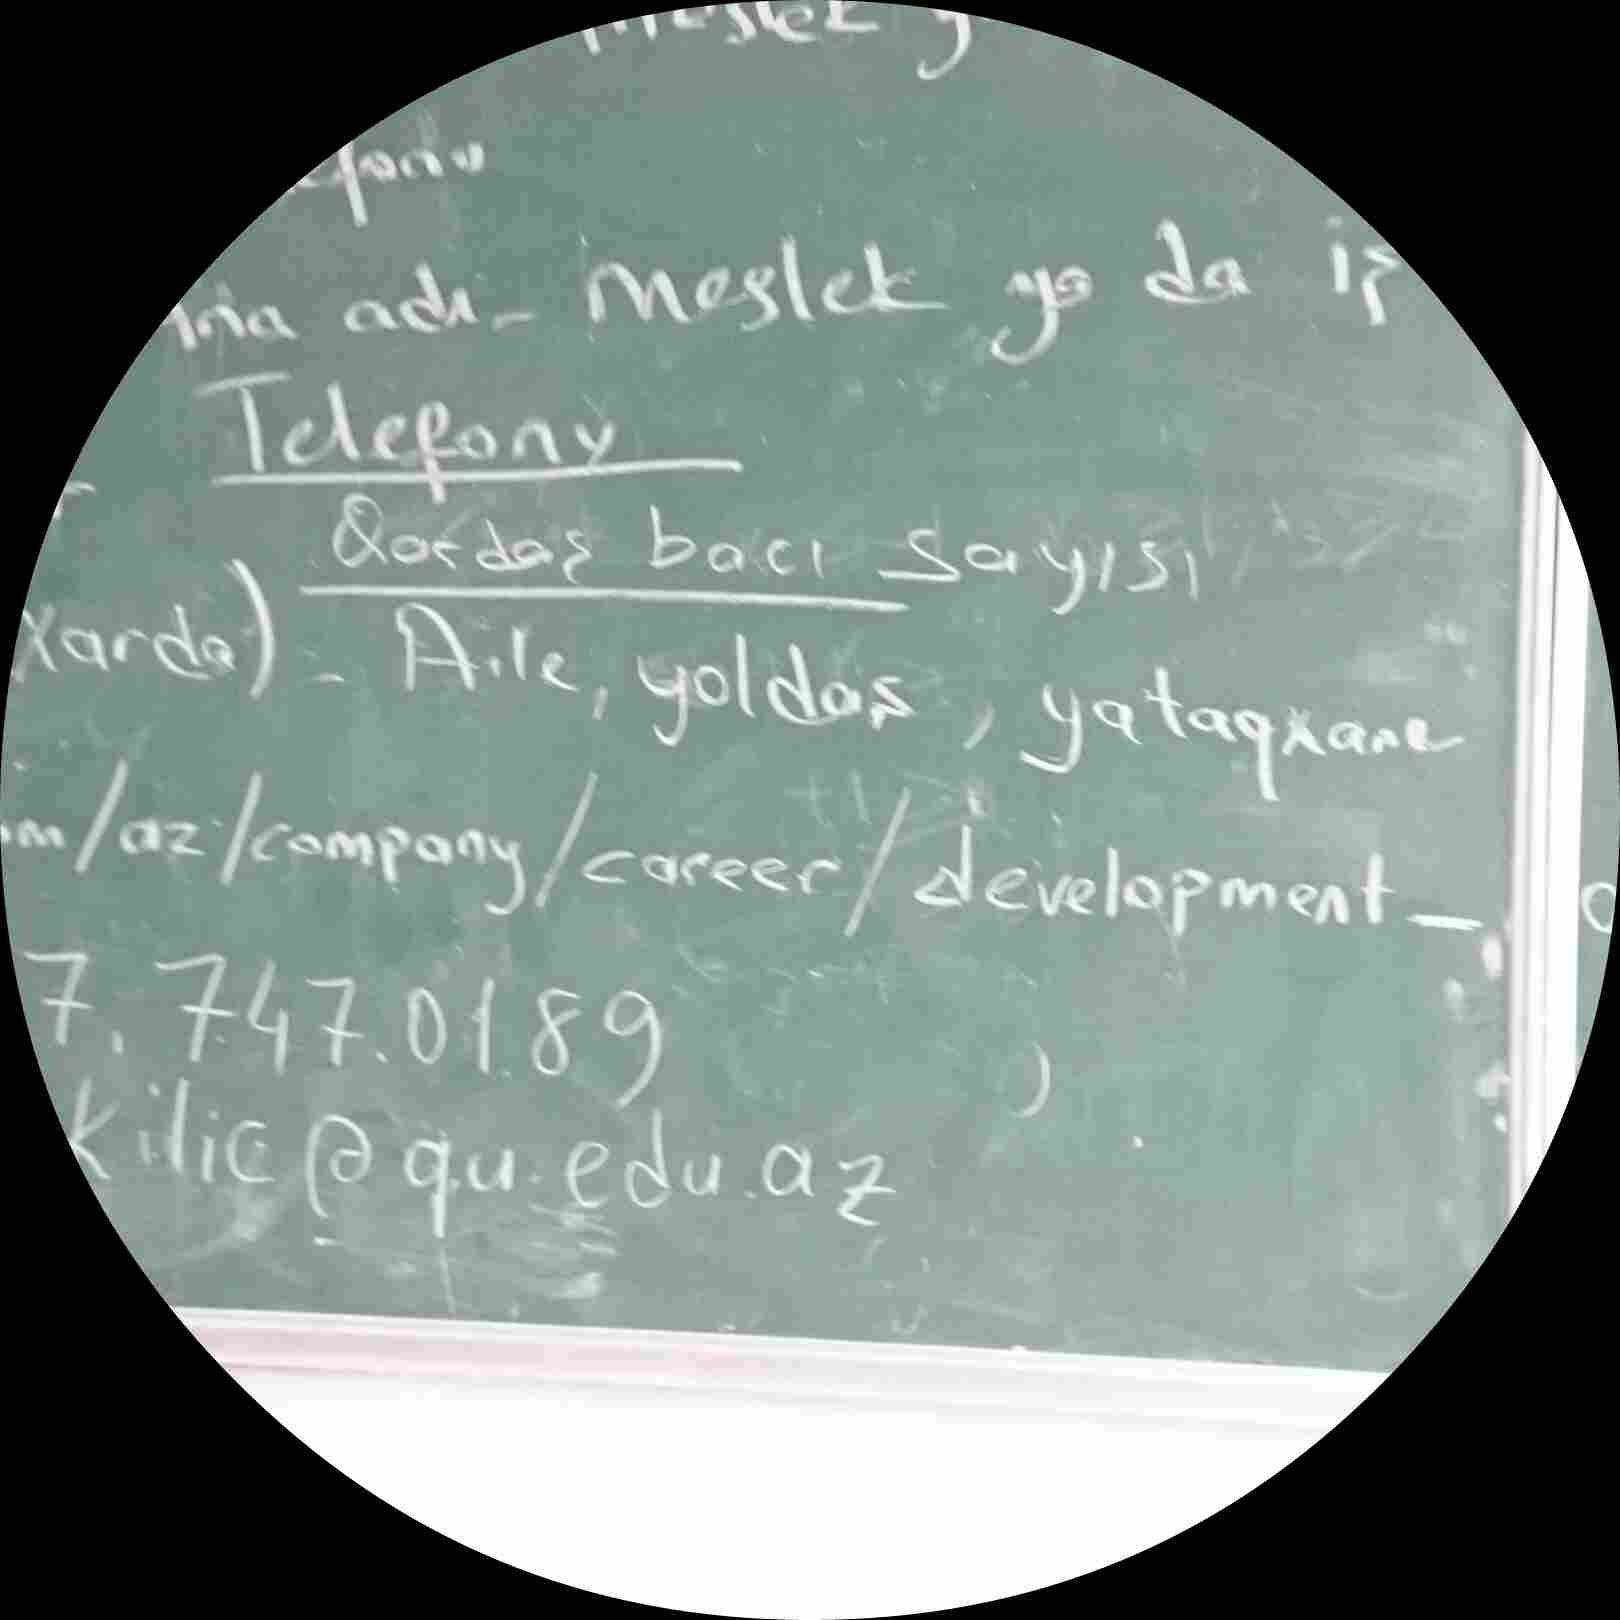 Meslek y
efonu
Ana adı - Meslek ya da iş
Telefonu
Qardaş bacı sayısı
xarda) - Aile, yoldaş, yataqxane
om/az/company/career/development_
7.747.01.89
kilic@qu.edu.az